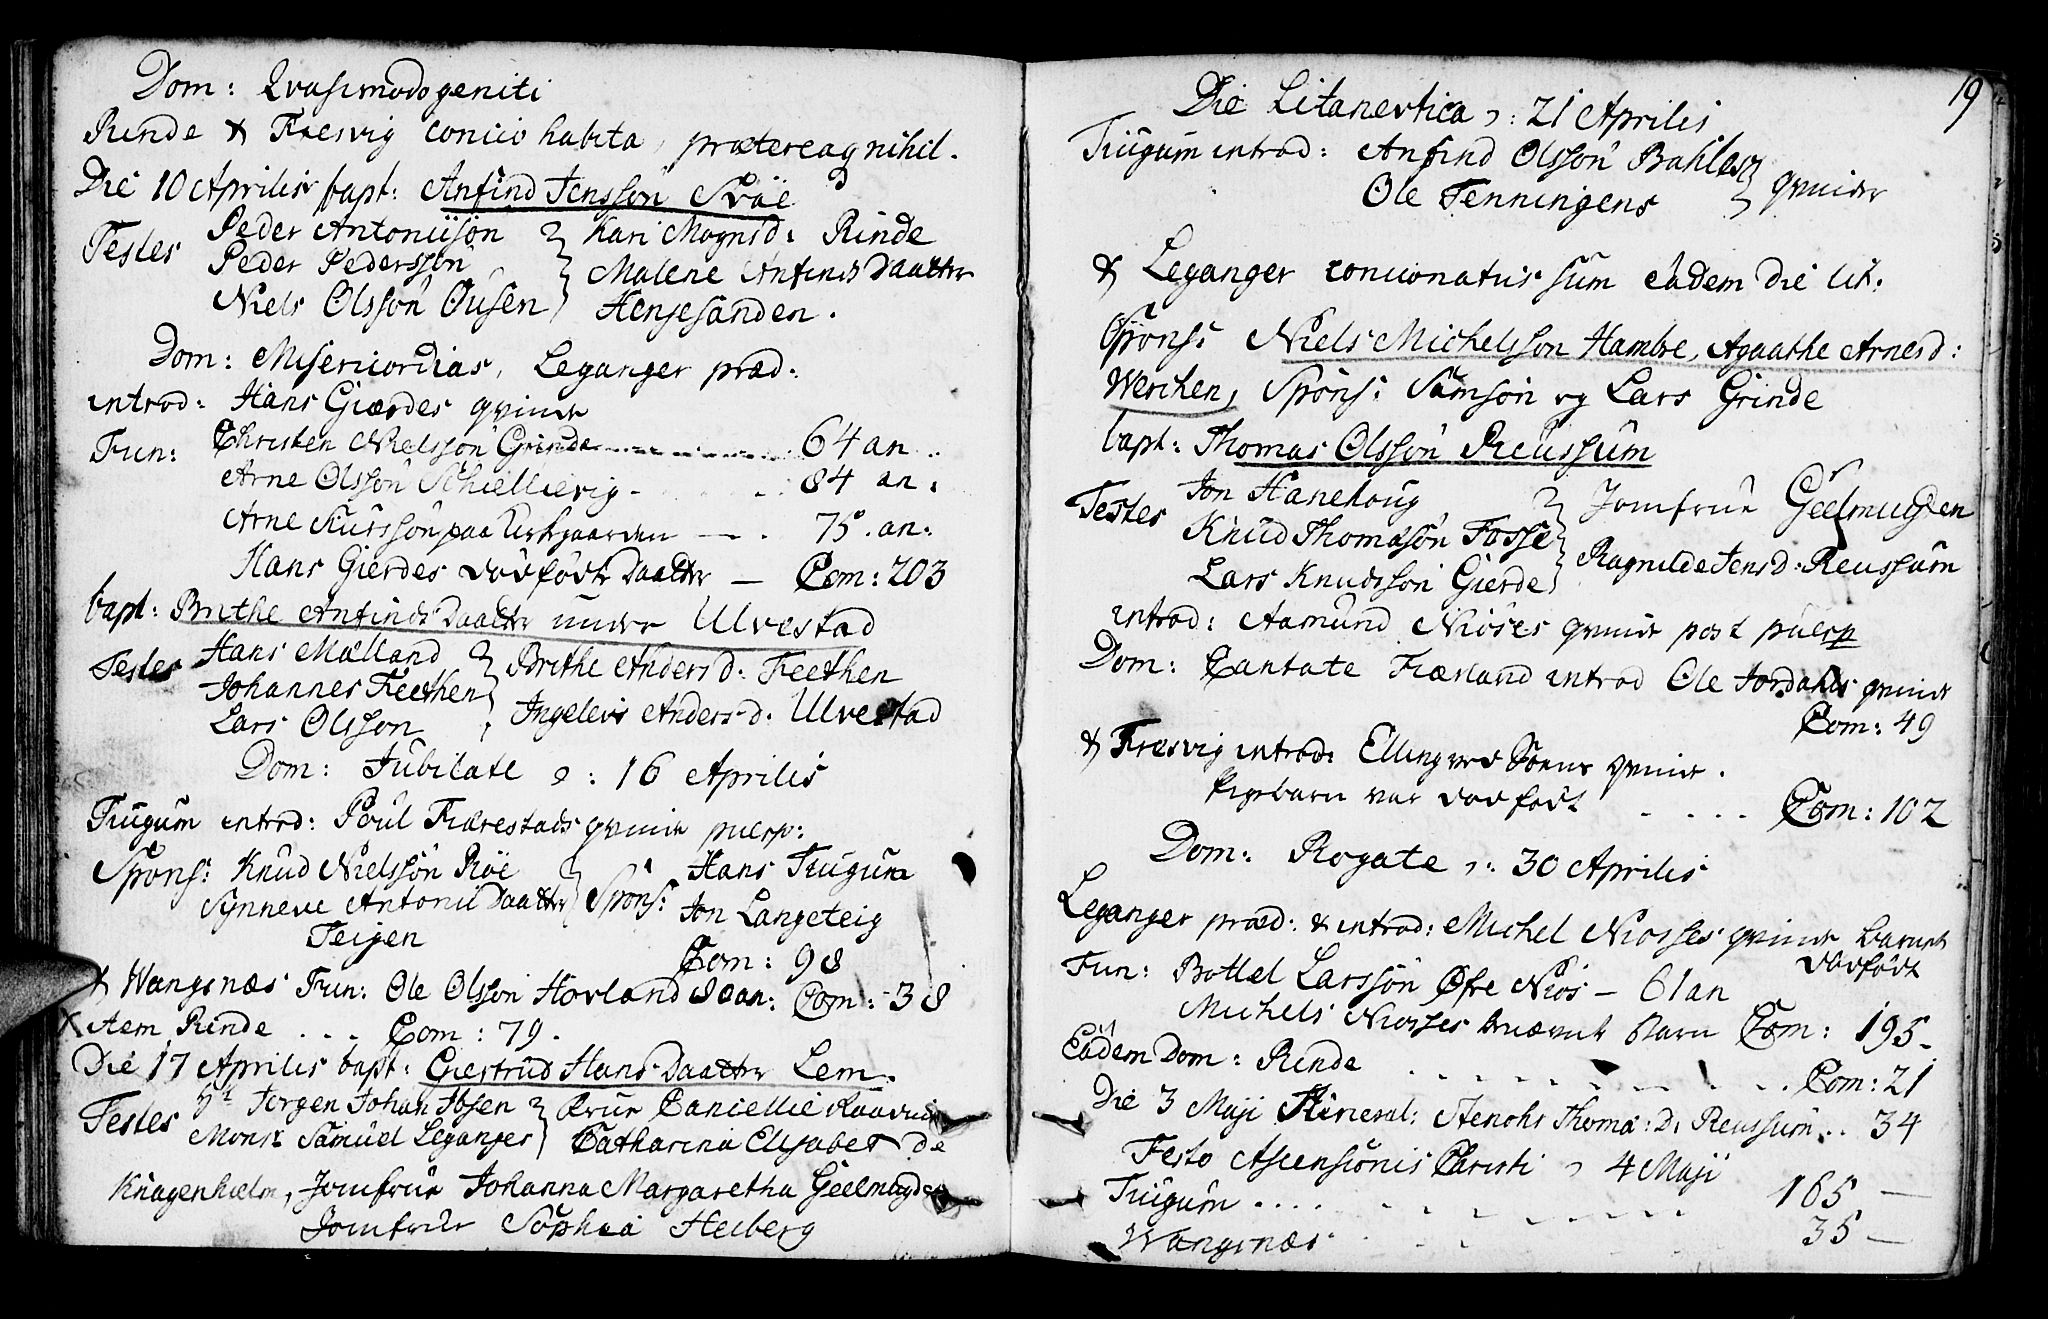 Dom: Qvasimodogeniti
Rinde & Fresvig concio habita, prætereaq nihil.
Die 10 Aprilis bapt: Anfind Jensson Svæ
Testes Peder Antoniison } Kari Mognsd: Rinde
Peder Pederssøn } Malene Anfinds Daatter
Niels Olssøn Ousen } Henjesanden.
Dom: Misericordias, Leganger præd:
introd: Hans Gierdes qvinde
Fun: Christen Nielssøn Grinde 64 an.
Arne Olssøn Schiellevig - 84 an:
Arne Siurssøn paa Kirkgaarden - 75. an:
Hans Gierdes dødfødte Daatter - Com: 203
bapt: Brithe Anfinds Daatter under Ulvestad
Testes Hans Mælland } Brithe Andersd: Feethen
Johannes Feethen } Ingelevs Andersd. Ulvestad
Lars Olsson
Dom: Jubilate ɔ: 16 Aprilis
Tiugum introd: Poul Fiærestads qvinde puerp:
Spons: Knud Nielssøn Røe } Hans Tiugum
Synneve Antonii Daatter } Spons: Jon Langeteig
Teigen
Com: 98
& Wangsnæs Fun: Ole Olsson Hovland 80 an: Com: 38
Item Rinde . . . Com: 79.
Die 17 Aprilis bapt: Giertrud Hans Daatter Lem.
Testes Hr Jørgen Johan Ibsen } Frue Danielle
Monsr Samuel Leganger } Catharina Elisabet de
Knagenhielm, Jomfrue Johanna Margaretha Geelmuyden
Jomfrue Sophia Heiberg
19
Die Litanevtica ɔ: 21 Aprilis
Tiugum introd: Anfind Olssøn Bahles } qvinder
Ole Tenningens
& Leganger concionatus sum eadem die lit:
Spons: Niels Michelsson Hambre, Agaathe Arnesd:
Werchen, Spons: Samson og Lars Grinde
bapt: Thomas Olssøn Reussum
Testes Jon Hanehoug } Jomfrue Geelmuyden
Knud Thomasøn Fosse } Ragnilde Jensd: Reussum
Lars Knudssøn Gierde
introd: Aamund Nioses qvinde post puerp
Dom: Cantate Fiærland introd Ole Jordahls qvinde
Com: 49
& Fresvig introd: Elling qvinde.
Pigebarn var dødfødt . . . . Com: 102
Dom: Rogate ɔ: 30 Aprilis
Leganger præd: & introd: Michel Niosses qvinde barnet
dødfødt
Fun: Bottel Larssøn Øfre Nios - 61 an
Michels Niosses Barn Com: 195.
Eadem Dom: Rinde . . . . Com: 21
Die 3 Maji Itineral: Thomæ: D: Reussum. . 34
Festo Ascensionis Christi ɔ 4 Maji
Tiugum . . . . 165 -
Wangsnæs 35 -